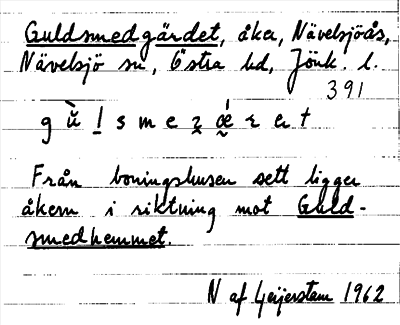 Guldsmedgärdet, åker, Nävelsjöås,
Nävelsjö sn, Östra hd, Jönk. l.
391
Från boningshusen sett ligger
åkern i riktning mot Guld-
smedhemmet.
N af Geijerstam 1962